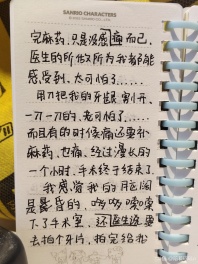 SANRIO CHARACTERS
完麻药,只是没感痛而已,
医生的所做所为我都能
感受到,太可怕了……
用刀把我的牙龈割开,
一刀一刀的,老可怕了……
而且有的时候痛还要补
麻药,也痛,经过漫长的
一个小时,手术终于结束了,
我感觉我的脑阔
是晕晕的,
下了手术室,还医生说要
去拍个牙片,拍完给我